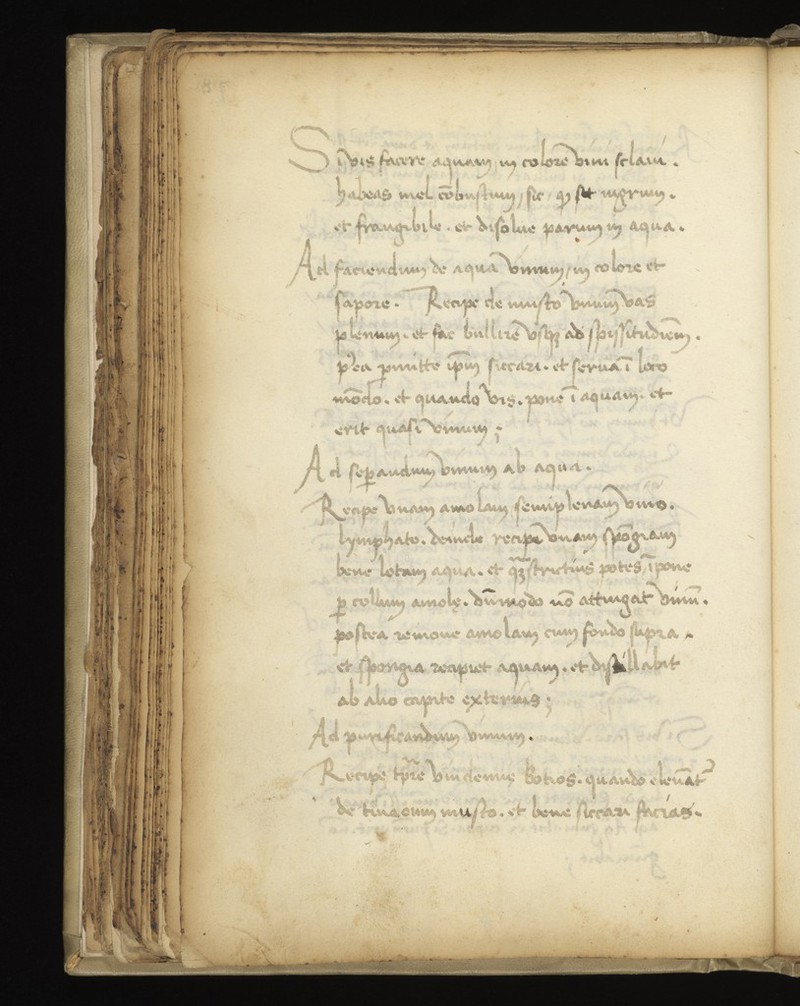 Si vis facere aquam, in colorē vini sclavi.
habeas mel cōbustum, sic, qȝ sit nigrum.
et frangibile. et disolue parum in aqua.
Ad faciendum de aqua vinum, in colore et
sapore. Recipe de musto vnum vas
plenum. et fac bullirē vsqȝ ad spissitudiēm.
p'ea ꝑmitte ip̄m siccari. et serua ī loco
mōdo. et quando vis. pone ī aquam. et
erit quasi vinum;
Ad seꝑandum vinum ab aqua.
Recipe vnam amolam semiplenam vino.
lymphato. deinde recipe vnam spōgiam
bene lotam aqua. et strictius potes, īpone
ꝑ collum amole. dūmodo nō attingat vinū.
postea remoue amolam cum fondo supra.
et spongia recipiet aquam. et distillabit
ab alio capite exterius;
Ad purificandum vinum.
Recipe tp̄re vindemie botros. quando eleuāt'
de musto. et bene siccari facias.